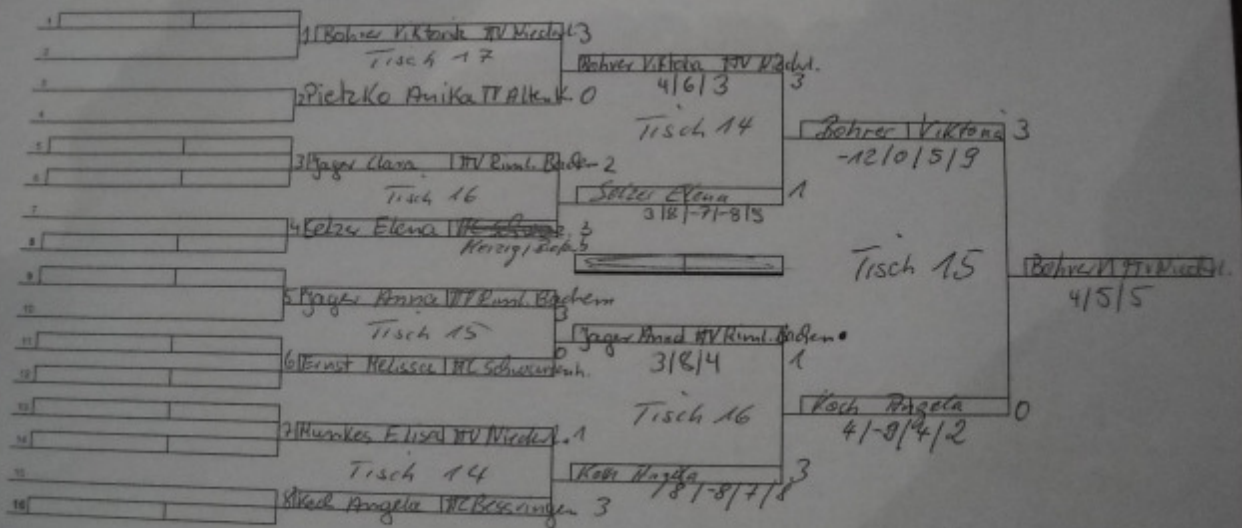 1 Bohrer Viktoria TTV Niederl. 3
Tisch 17
2 Pietzko Anika TT Altenk. 0
3 Jager Clara TTV Riml. Bachem 2
Tisch 16
4 Selzer Elena 3
5 Jager Anna TTV Riml. Bachem
3
Tisch 15
0
6 Ernst Melissa TTC Schwarzenh.
7 Munkes Elisa TTV Niederl. 1
Tisch 14
8 Koch Angela TTC Bessringen 3
Bohrer Viktoria TTV Niederl.
4/6/3 3
Tisch 14
Selzer Elena 1
3/8/-7/-8/5
Jager Anna TTV Riml. Bachem
3/8/4 1
Tisch 16
Koch Angela 3
/8/-8/7/8
Bohrer Viktoria 3
-12/0/5/9
Tisch 15
Koch Angela 0
4/-9/4/2
Bohrer V. TTV Niederl.
4/5/5